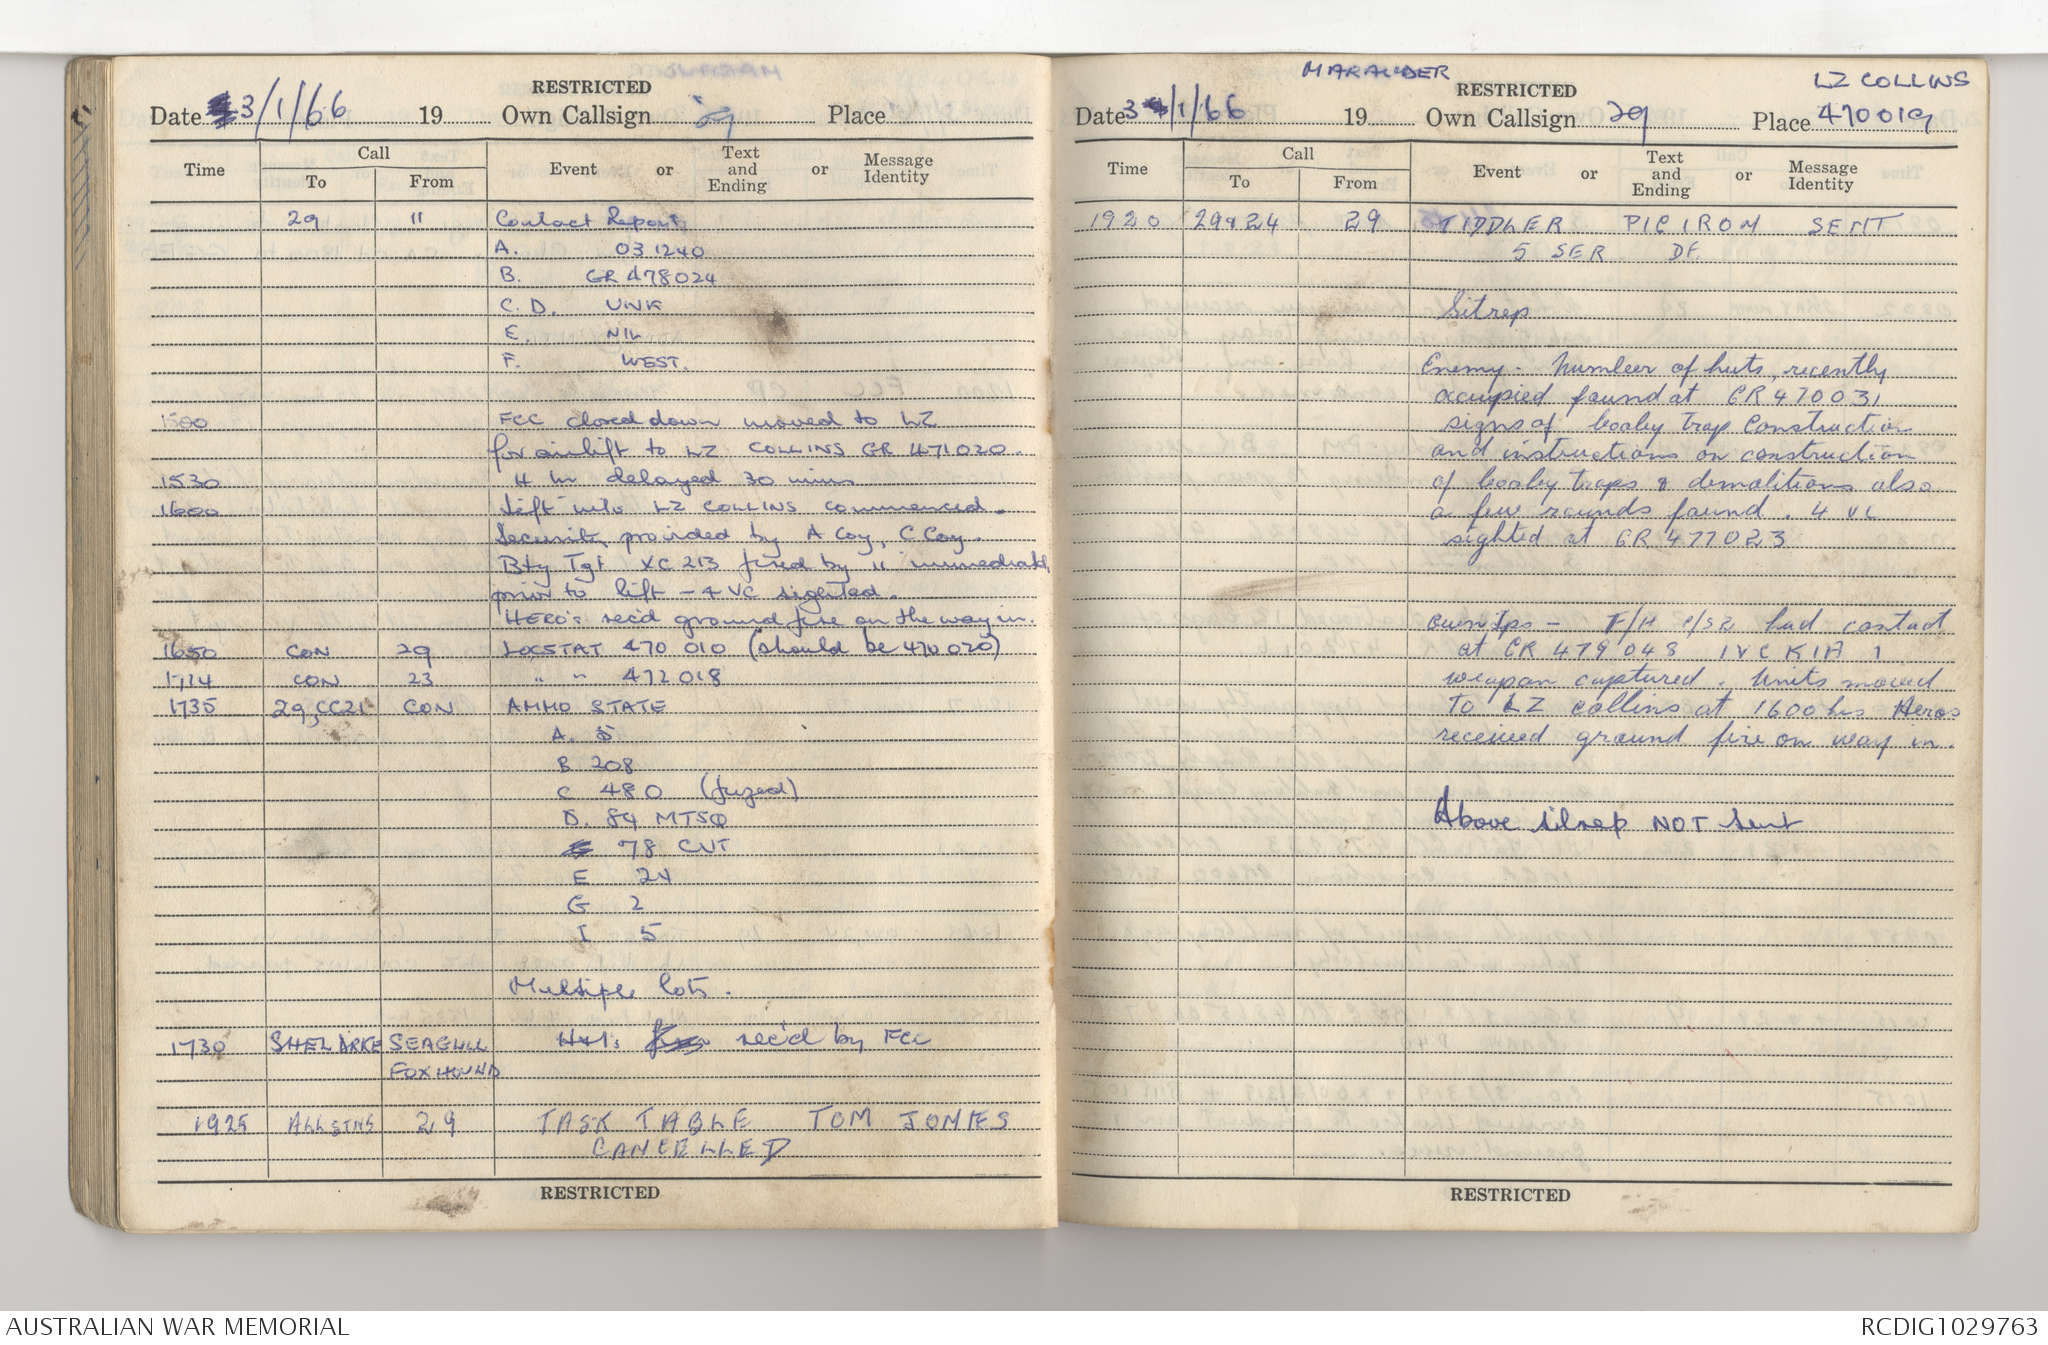 RESTRICTED
Date 3/1/66 19 Own Callsign 29 Place
Time Call To From Event or Text and Ending or Message Identity
29 " Contact Reports
A. 031240
B. GR 478024
C. D. UNK
E. NIL
F. WEST.
1500 FCC closed down moved to LZ
for airlift to LZ COLLINS GR 471020.
1530 H hr delayed 30 mins
1600 Lift into LZ COLLINS commenced.
Security provided by A Coy, C Coy.
Bty Tgt XC 213 fired by 11 immediately
prior to lift - 4 VC sighted.
HERO's rec'd ground fire on the way in.
1650 CON 29 LOCSTAT 470 010 (should be 470 020)
1714 CON 23 " " 472018
1735 29, CC21 CON AMMO STATE
A. 5
B 208
C 480 (fuzed)
D. 84 MTSQ
78 CVT
E 24
G 2
I 5
Multiple lots.
1730 SHELDRKE SEAGULL rec'd by FCC
FOXHOUND
1925 ALLSTNS 29 TASK TABLE TOM JONES
CANCELLED
RESTRICTED
MARAUDER
RESTRICTED
LZ COLLINS
Date 3/1/66 19 Own Callsign 29 Place 470019
Time Call To From Event or Text and Ending or Message Identity
1920 29 24 29 TIDDLER PICIROM SENT
5 SER DF.
Sitrep
Enemy - Number of huts, recently
occupied found at GR 470031
signs of booby trap Construction
and instructions on construction
of booby traps & demolitions also
a few rounds found. 4 VC
sighted at GR 477023
Own Tps - F/H C/S2 had contact
at GR 479048 1 VC KIA 1
weapon captured. Units moved
to LZ Collins at 1600 hrs Heros
received ground fire on way in.
Above sitrep NOT sent
RESTRICTED
AUSTRALIAN WAR MEMORIAL
RCDIG1029763